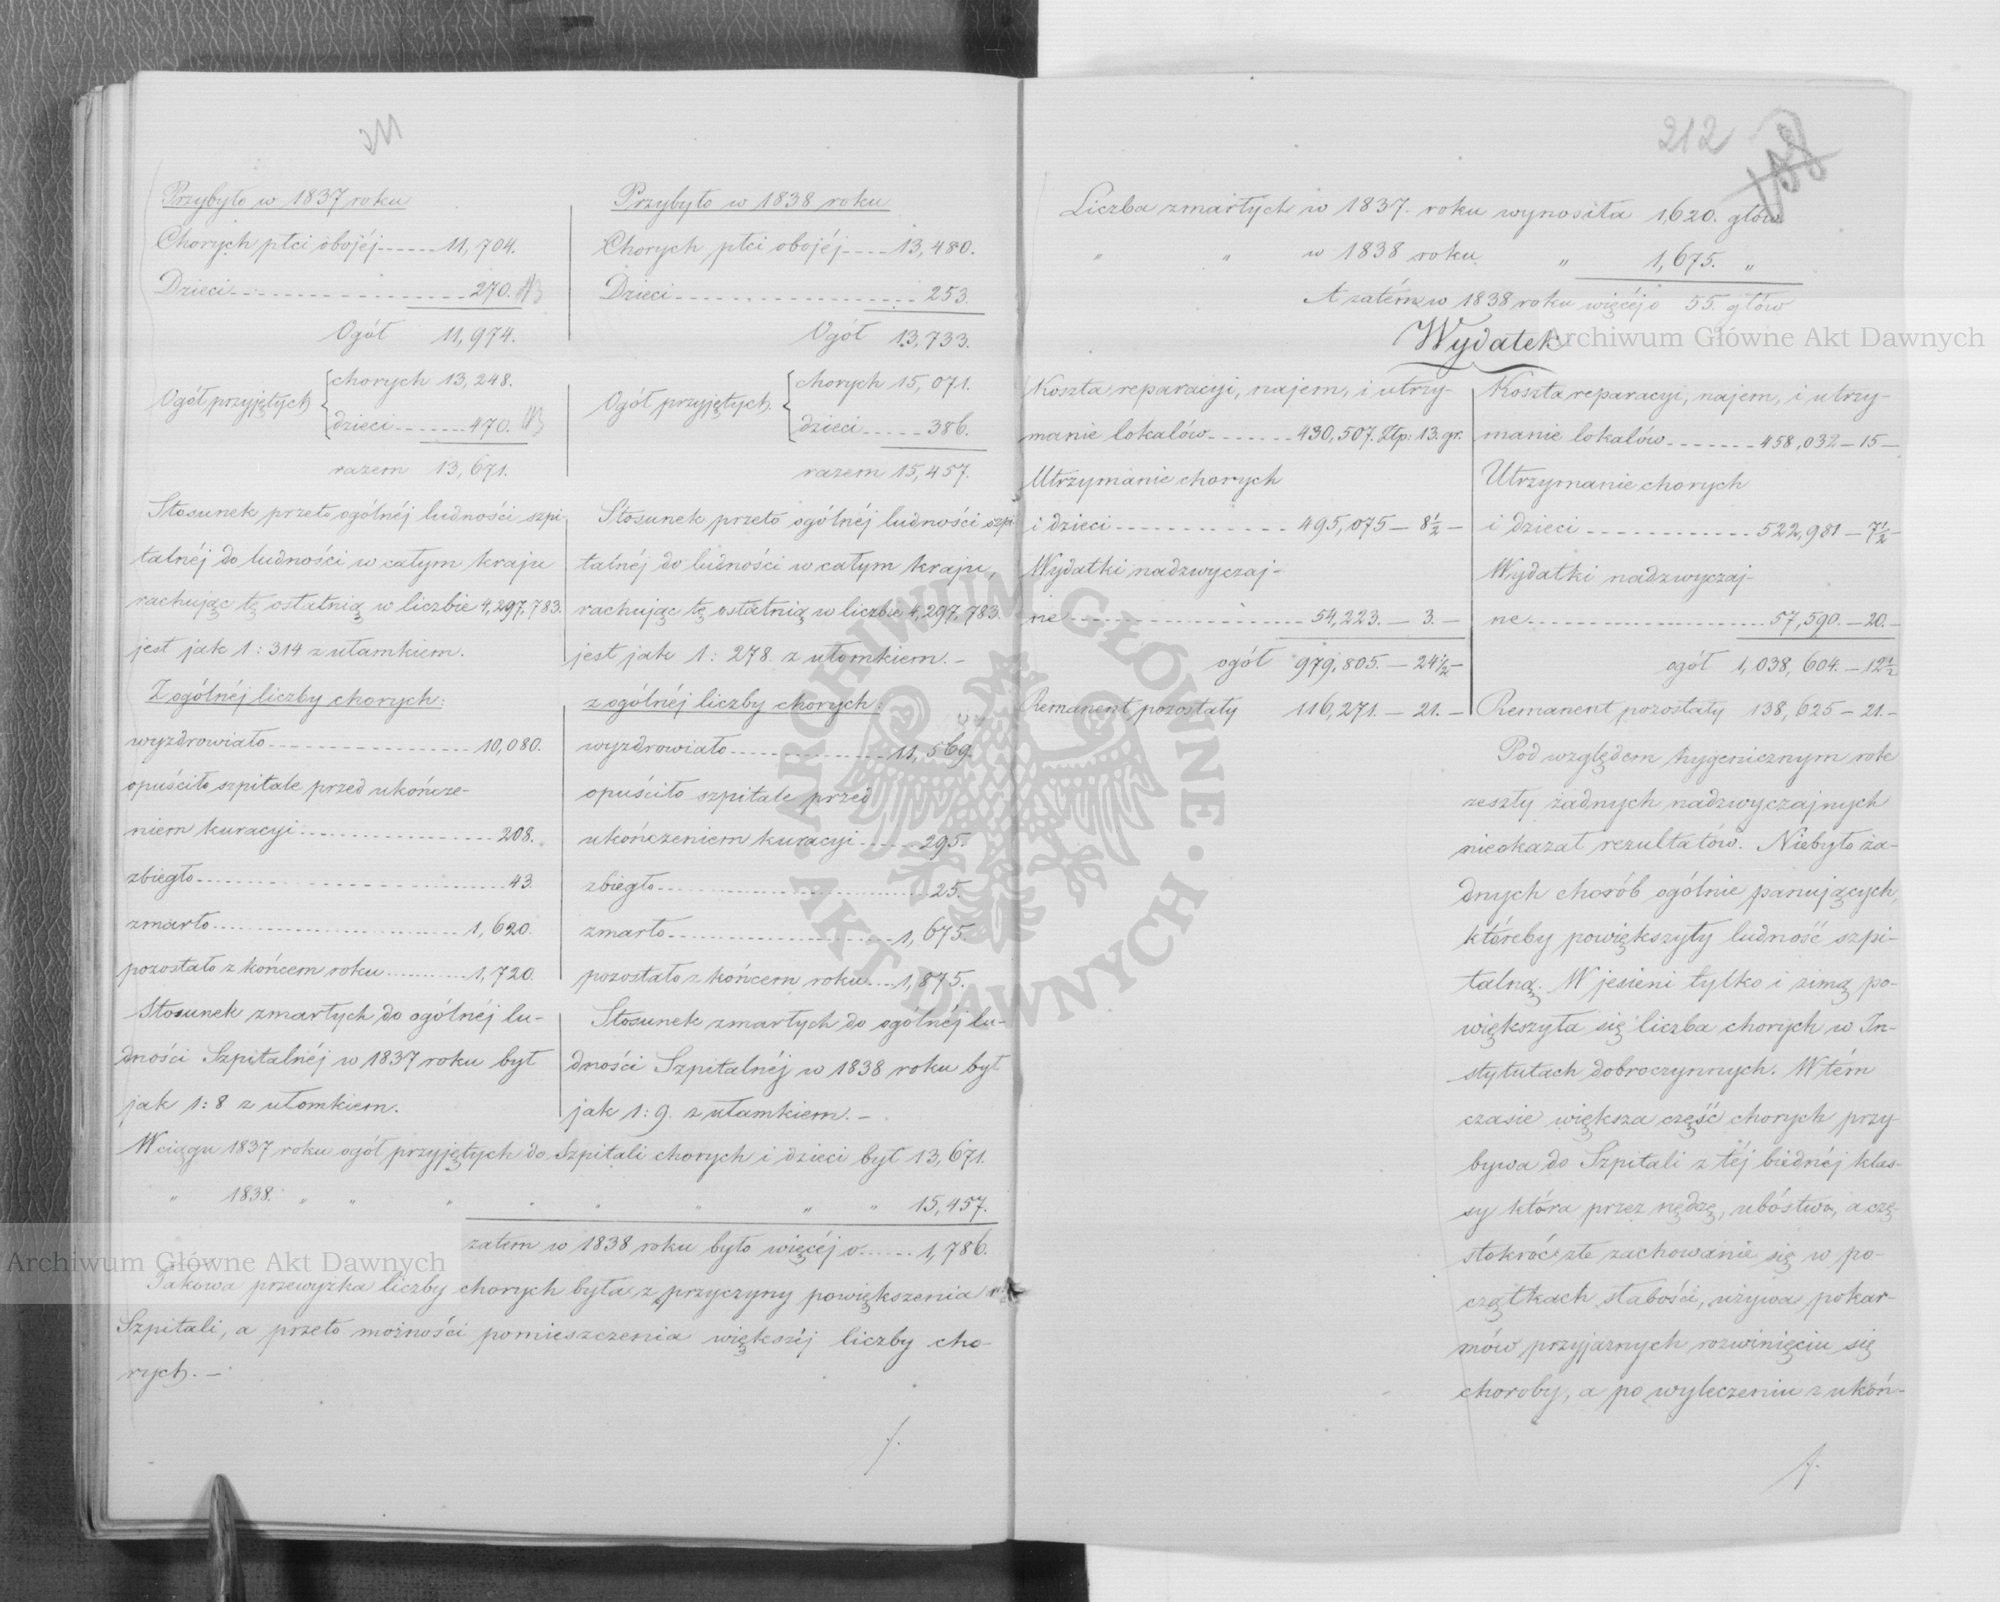 211
Przybyło w 1837 roku
Chorych płci obojéj 11,704.
Dzieci 270.
Ogół 11,974.
Ogół przyjętych { chorych 13,248.
dzieci 470.
razem 13,671.
Stosunek przeto ogólnéj ludności szpi
talnéj do ludności w całym kraju
rachując tę ostatnią w liczbie 4,297,783.
jest jak 1: 314 z ułamkiem.
Z ogólnéj liczby chorych:
wyzdrowiało 10,080.
opuściło szpitale przed ukończe-
niem kuracyi 208.
zbiegło 43.
zmarło 1,620.
pozostało z końcem roku 1,720.
Stosunek zmarłych do ogólnéj lu-
dności Szpitalnéj w 1837 roku był
jak 1: 8 z ułomkiem.
Przybyło w 1838 roku
Chorych płci obojéj 13,480.
Dzieci 253.
Ogół 13,733.
Ogół przyjętych { chorych 15,071.
dzieci 386.
razem 15,457.
Stosunek przeto ogólnéj ludności szpi
talnéj do ludności w całym kraju,
rachując tę ostatnią w liczbie 4,297,783.
jest jak 1: 278. z ułomkiem. –
z ogólnéj liczby chorych:
wyzdrowiało 11,569.
opuściło szpitale przed
ukończeniem kuracyi 295.
zbiegło 25.
zmarło 1,675.
pozostało z końcem roku 1,875.
Stosunek zmarłych do ogólnéj lu-
dności Szpitalnéj w 1838 roku był
jak 1: 9. z ułamkiem. –
W ciągu 1837 roku ogół przyjętych do Szpitali chorych i dzieci był 13,671.
" 1838. " " " " " " " " 15,457.
zatem w 1838 roku było więcéj o 1,786.
Takowa przewyżka liczby chorych była z przyczyny powiększenia
Szpitali, a przeto możności pomieszczenia większéj liczby cho-
rych. –
212
Liczba zmarłych w 1837. roku wynosiła 1,620. głów
" " w 1838 roku " 1,675. "
A zatém w 1838 roku więcéj o 55. głów
Wydatek
Koszta reparacyi, najem, i utrzy-
manie lokalów 430,507. Złp: 13. gr.
Utrzymanie chorych
i dzieci 495,075 – 8½ –
Wydatki nadzwyczaj-
ne 54,223. – 3. –
ogół 979,805. – 24½ –
Remanent pozostały 116,271. – 21. –
Koszta reparacyi, najem, i utrzy-
manie lokalów 458,032 – 15 –
Utrzymanie chorych
i dzieci 522,981 – 7½ –
Wydatki nadzwyczaj-
ne 57,590. – 20. –
ogół 1,038,604. – 12½
Remanent pozostały 138,625 – 21. –
Pod względem hygenicznym rok
zeszły żadnych nadzwyczajnych
nieokazał rezultatów. Niebyło ża-
dnych chorób ogólnie panujących,
któreby powiększyły ludność szpi-
talną. W jesieni tylko i zimą po-
większyła się liczba chorych w In-
stytutach dobroczynnych. W tém
czasie większa część chorych przy
bywa do Szpitali z téj biednéj klas-
sy która przez nędzę, ubóstwo, a czę-
stokroć złe zachowanie się w po-
czątkach słabości, używa pokar-
mów przyjaznych rozwinięciu się
choroby, a po wyleczeniu z ukoń-
Archiwum Główne Akt Dawnych
Archiwum Główne Akt Dawnych
ARCHIWUM GŁÓWNE · AKT DAWNYCH ·